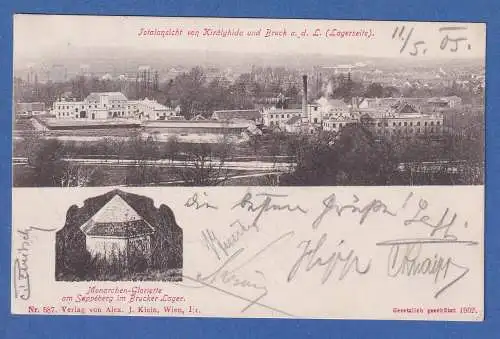 Totalansicht von Királyhida und Bruck a. d. L. (Lagerseite).
11/5. 05.
die besten Grüße!
Hipp
Monarchen-Gloriette
am Seppéberg im Brucker Lager.
Nr. 587. Verlag von Alex. J. Klein, Wien, I/1.
Gesetzlich geschützt 1902.